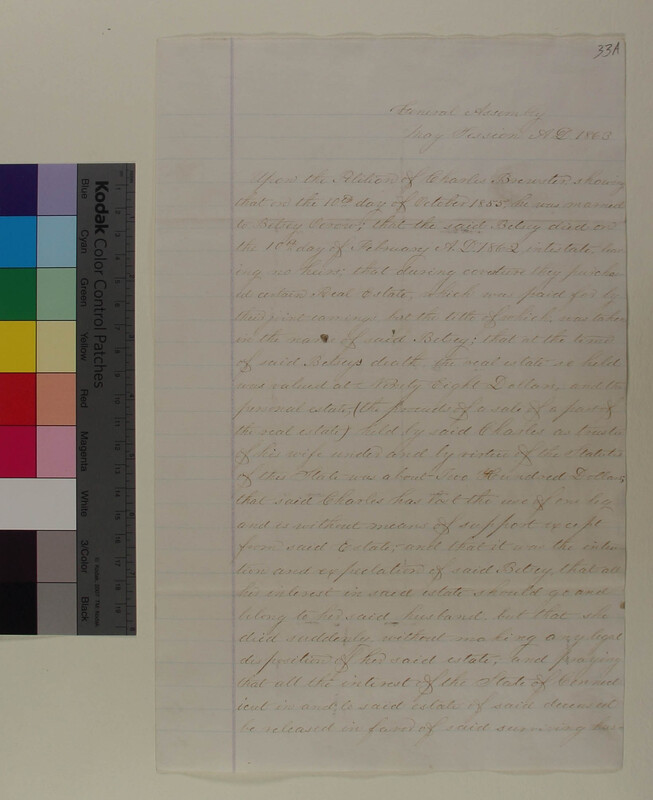 33A
General Assembly
May Session A.D. 1863
Upon the Petition of Charles Brewster showing
that on the 10th day of October 1855, he was married
to Betsey; that the said Betsey died on
the 10th day of February A.D. 1862 intestate, hav
ing no heirs; that during coverture they purchas
ed certain Real Estate, which was paid for by
their joint earnings but the title of which was taken
in the name of said Betsey; that at the time
of said Betseys death, the real estate so held
was valued at Ninety Eight Dollars, and the
personal estate, (the proceeds of a sale of a part of
the real estate) held by said Charles as trustee
of his wife under and by virtue of the Statutes
of this State was about Two Hundred Dollars
that said Charles has lost the use of one leg
and is without means of support except
from said Estate; and that it was the inten
tion and expectation of said Betsey that all
her interest in said estate should go and
belong to her said husband but that she
died suddenly without making any legal
disposition of her said estate; and praying
that all the interest of the State of Connect
icut in and to said estate of said deceased
be released in favor of said surviving
Kodak Color Control Patches
Blue
Cyan
Green
Yellow
Red
Magenta
White
3/Color
Black